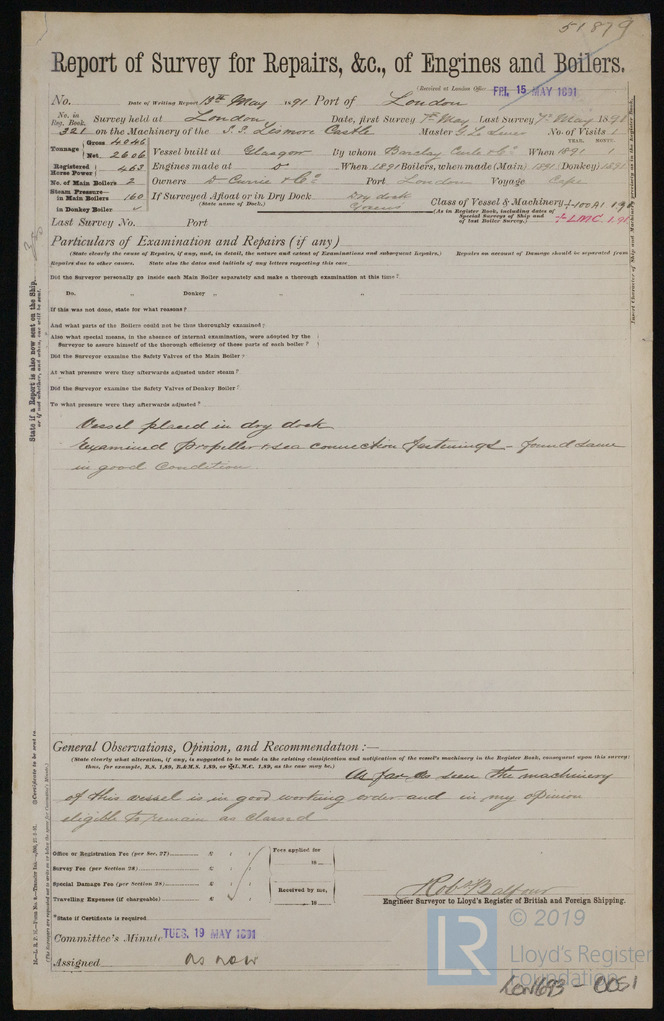 51879
Report of Survey for Repairs, &c., of Engines and Boilers.
(Received at London Office FRI. 15 MAY 1891
No. Date of Writing Report 13th May 1891 Port of London
No. in Reg. Book. Survey held at London Date, first Survey 7th May Last Survey 7th May 1891
321 on the Machinery of the S.S. Lismore Castle Master No. of Visits 1
Tonnage Gross 4046
Net 2606
Vessel built at Glasgow By whom Barclay Curle & Co. When 1891 YEAR. MONTH. 1
Registered Horse Power 463 Engines made at Do When 1891 Boilers, when made (Main) 1891 (Donkey) 1891
No. of Main Boilers 2 Owners D Currie & Co. Port London Voyage Cape
Steam Pressure in Main Boilers 160 If Surveyed Afloat or in Dry Dock Dry dock
(State name of Dock.)
in Donkey Boiler
Class of Vessel & Machinery +100A1 1.91
(As in Register Book, including dates of Special Surveys of Ship and of last Boiler Survey.) +LMC 1.91
Last Survey No. Port
Particulars of Examination and Repairs (if any)
(State clearly the cause of Repairs, if any, and, in detail, the nature and extent of Examinations and subsequent Repairs.) Repairs on account of Damage should be separated from
Repairs due to other causes. State also the dates and initials of any letters respecting this case
Did the Surveyor personally go inside each Main Boiler separately and make a thorough examination at this time?
Do. „ Donkey „ „ „
If this was not done, state for what reasons?
And what parts of the Boilers could not be thus thoroughly examined?
Also what special means, in the absence of internal examination, were adopted by the
Surveyor to assure himself of the thorough efficiency of those parts of each boiler?
Did the Surveyor examine the Safety Valves of the Main Boiler?
At what pressure were they afterwards adjusted under steam?
Did the Surveyor examine the Safety Valves of Donkey Boiler?
To what pressure were they afterwards adjusted?
Vessel placed in dry dock
Examined propeller & sea connection fastenings - found same
in good condition
General Observations, Opinion, and Recommendation :—
(State clearly what alteration, if any, is suggested to be made in the existing classification and notification of the vessel's machinery in the Register Book, consequent upon this survey:
thus, for example, B.S. 1,89, B.&M.S. 1,89, or ✠L.M.C. 1,89, as the case may be.)
As far as seen the machinery
of this vessel is in good working order and in my opinion
eligible to remain as classed
Office or Registration Fee (per Sec. 27) £ : :
Survey Fee (per Section 28) £ : :
Special Damage Fee (per Section 28) £ : :
Travelling Expenses (if chargeable) £ : :
Fees applied for
18
Received by me,
18
Robt Balfour
Engineer Surveyor to Lloyd's Register of British and Foreign Shipping.
*State if Certificate is required
Committee's Minute TUES. 19 MAY 1891
Assigned as now
State if a Report is also now sent on the Ship.
or if not whether, and when, one will be sent.
© 2019
LR
Lloyd's Register
Foundation
LON693 - 0051